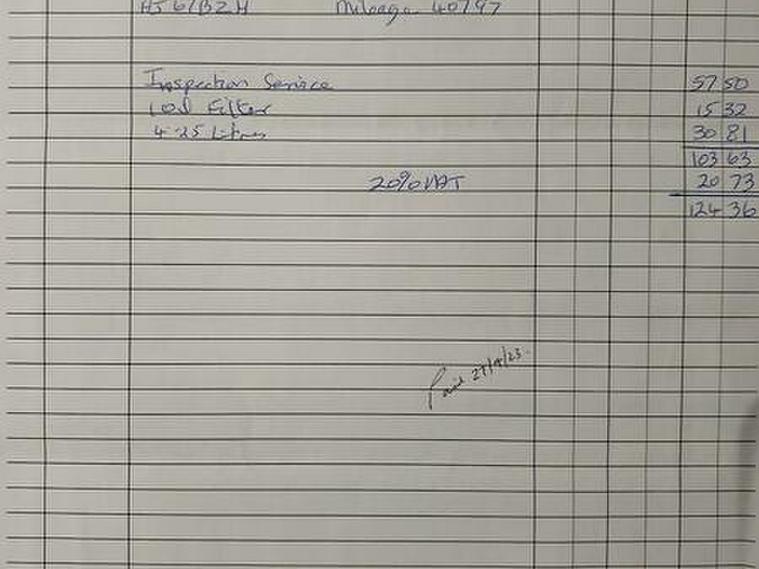 HJ61BZH Mileage 40797
Inspection Service 57 50
1 Oil Filter 15 32
4.25 Litres 30 81
103 63
20% VAT 20 73
124 36
Paid 27/9/23.